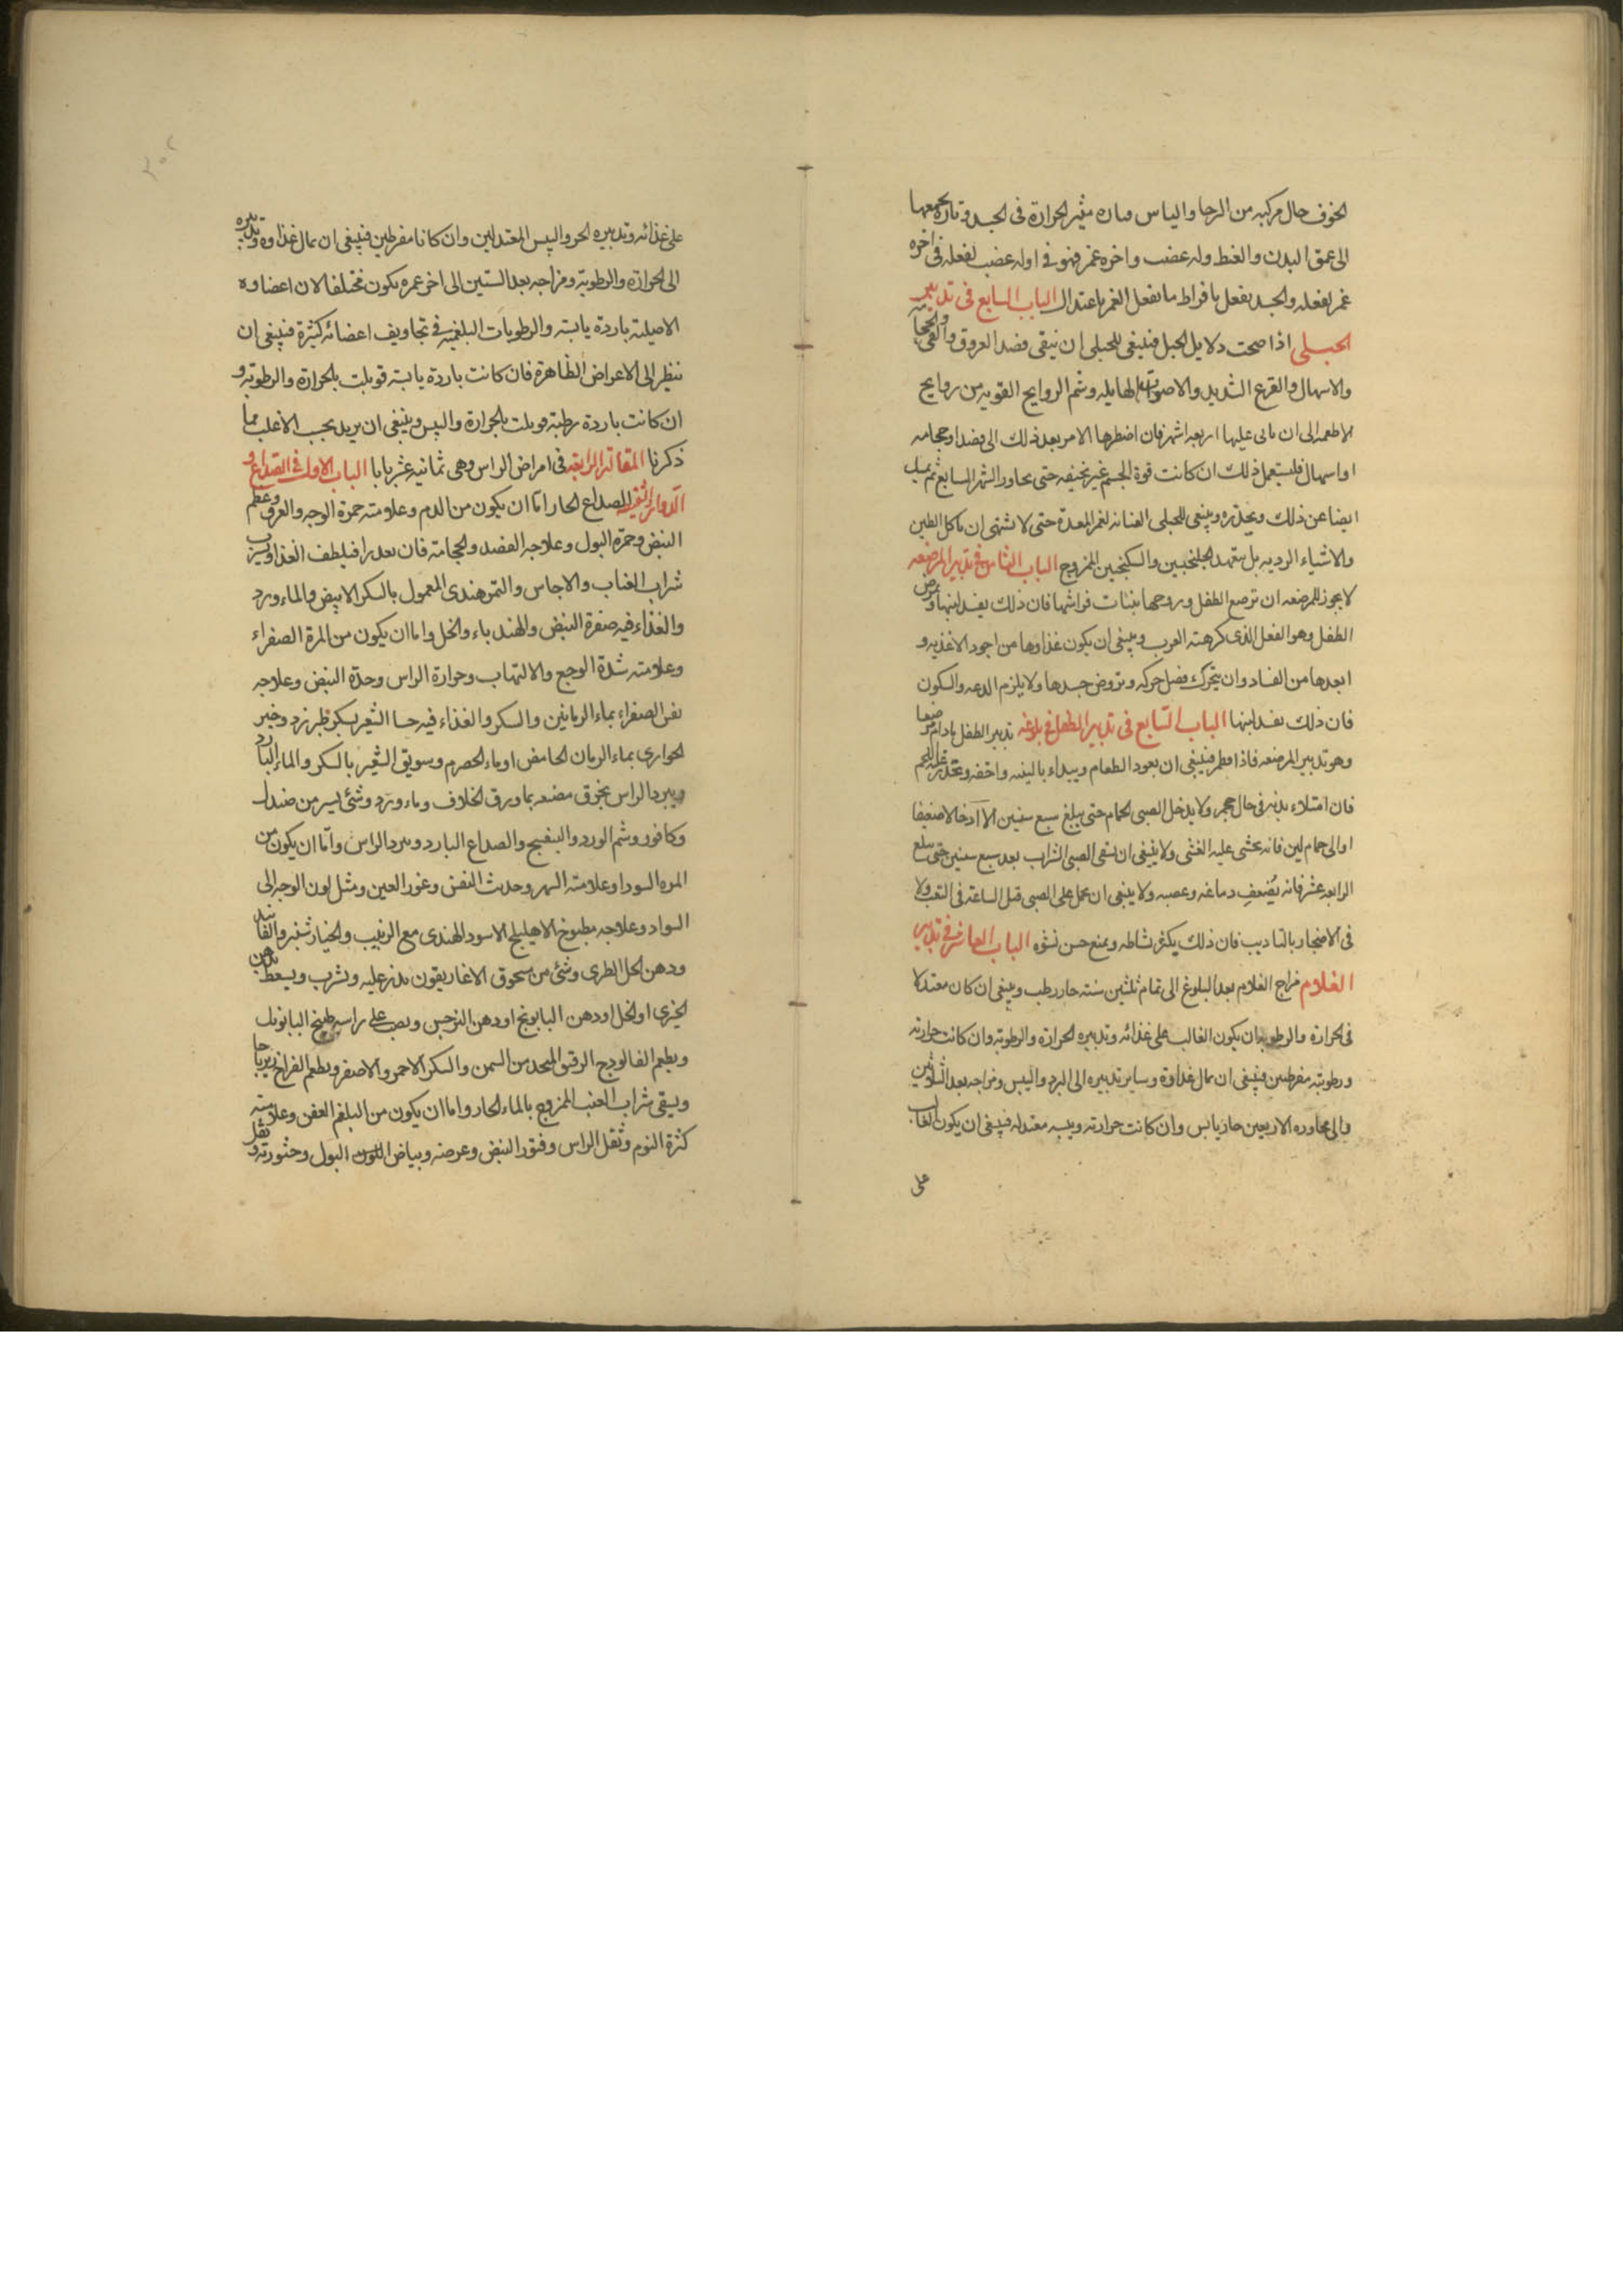 الخوف حال مركبه من الرجا والياس وبان مثير الحرارة فى الجسد وتارة يجمعها
الى عمق البدن والغيظ وله عضب واخره غم فهو فى اوله عضب لفعله فى اخره
غم لفعله والحسد يفعل بافراط ما يفعل الغم باعتدال الباب السابع فى تدبير
الحبلى اذا صحت دلايل الحبل فينبغى للحبلى ان تتقى فصد العروق والقى والحجامه
والاسهال والفزع الشديد والاصوات الهايله وشم الروايح القويه من روايح
الاطعمه الى ان ياتى عليها اربعه اشهر فان اضطرها الامر بعد ذلك الى فصد او حجامه
او اسهال فليستعمل ذلك ان كانت قوة الجسم غير نحيفه حتى يجاور الشهر السابع ثم يميل
ايضا عن ذلك ويحذره وينبغى للحبلى العنايه لفم المعدة حتى لا تشتهى ان تاكل الطين
والاشياء الرديه بل تتعهد الجلنجبين والسكنجبين الممزوج الباب الثامن فى تدبير المرضعه
لا يجوز للمرضعه ان ترضع الطفل وزوجها بنبات فراشها فان ذلك يفسد لبنها ويمرض
الطفل وهو الفعل الذى كرهته العرب وينبغى ان يكون غذاوها من اجود الاغذيه و
ابعدها من الفساد وان يتحرك فضل حركه وتروض جسدها ولا يلزم الدعه والسكون
فان ذلك يفسد لبنها الباب التاسع فى تدبير الطفل فى بلوغه تدبير الطفل مادام مرضعا
وهو تدبير المرضعه فاذا فطم فينبغى ان يعود الطعام ويبداء بالينه واخفه ويحذر غليظ اللحم
فان امتلاء بدنه فى حال حجم ولا يدخل الصبى الحمام حتى يبلغ سبع سنين الا ادخالا ضعيفا
او الى حمام لين فانه يخشى عليه الغشى ولا ينبغى ان يسقى الصبى الشراب بعد سبع سنين حتى يبلغ
الرابعه عشر فانه يضعف دماغه وعصبه ولا ينبغى ان يحمل على الصبى قبل الساعة فى التعب ولا
فى الاضجار بالتاديب فان ذلك يكثر نشاطه ويمنع حسن نشوه الباب العاشر فى تدبير
الغلام مزاج الغلام بعد البلوغ الى تمام ثلثين سنته حار رطب وينبغى ان كان معتدلا
فى الحرارة والرطوبه ان يكون الغالب على غذائه وتدبيره الحرارة والرطوبة وان كانت حرارته
ورطوبته مفرطين فينبغى ان يمال غذاوه وساير تدبيره الى البرد واليبس ومزاجه بعد الثلاثين
والى مجاوره الاربعين حار يابس وان كانت حرارته ويبسه معتدله فينبغى ان يكون الغالب
على
على غذائه وتدبيره الحر واليبس المعتدلين وان كانا مفرطين فينبغى ان يمال غذاوه وتدبيره
الى الحرارة والرطوبة ومزاجه بعد الستين الى اخر عمره يكون مختلفا لان اعضاوه
الاصلية باردة يابسة والرطوبات البلغميه فى تجاويف اعضائه كثيرة فينبغى ان
ننظر الى الاعراض الظاهرة فان كانت باردة يابسة قوبلت بالحرارة والرطوبة و
ان كانت باردة رطبة قوبلت بالحرارة واليبس وينبغى ان يزيد بحسب الاغلب مما
ذكرنا المقالة الرابعه فى امراض الراس وهى ثمانيه عشر بابا الباب الاول فى الصداع و
الدوار والشقيقه الصداع الحار اما ان يكون من الدم وعلامته حمرة الوجه والعروق وعظم
النبض وحمرة البول وعلاجه الفصد والحجامة فان بعد را فيلطف الغذا ويشرب
شراب العناب والاجاس والتمر هندى المعمول بالسكر الابيض والماء ورد
والغذاء فيه صفرة البيض والهندباء والخل واما ان يكون من المرة الصفراء
وعلامته شدة الوجع والالتهاب وحرارة الراس وحدة النبض وعلاجه
نفى الصفراء بماء الرمانين والسكر والغذاء فيه حسا الشعير بسكر طبرزد وخبز
الحوارى بماء الرمان الحامض او ماء الحصرم وسويق الشعير بالسكر والماء البارد
ويبرد الراس بخرق مضعه بماورق الخلاف وماء ورد وشئ يسير من صندل
وكافور وشم الورد والبنفسج والصداع البارد وبرد الراس واما ان يكون من
المره السودا وعلامته السهر وحديث النفس وغور العين وميل لون الوجه الى
السواد وعلاجه مطبوخ الاهليلج الاسود الهندى مع الزبيب والخيار شنبر والفانيد
ودهن الحل الطرى وشئ من مسحوق الاغاريقون يدر عليه ويشرب ويسعط بدهن
الخيرى او الخل او دهن البابونج او دهن النرجس ويصب على راسه طبيخ البابونك
ويطعم الفالودج الرقيق المتخذ من السمن والسكر الاحمر والاصفر ويطعم الفراخ زيرباجا
ويسقى شراب العنب الممزوج بالماء الحار واما ان يكون من البلغم العفن وعلامته
كثرة النوم وثقل الراس وفتور النبض وعرضه وبياض اللون البول وخثورته وثقل